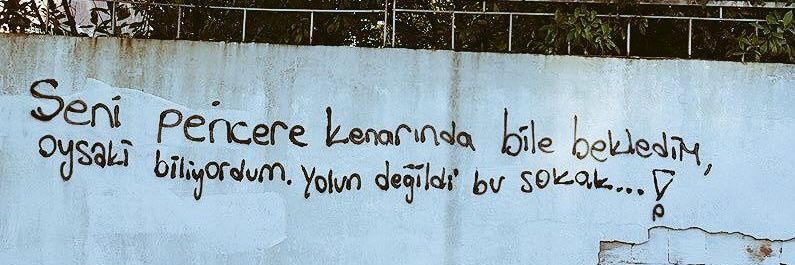 Seni pencere kenarında bile bekledim,
oysaki biliyordum. Yolun değildi bu sokak...!